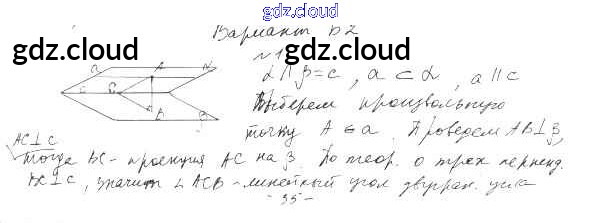 gdz.cloud
Вариант Б2
gdz.cloud gdz.cloud
№1
α∩β=c, a⊂α, a∥c
a A α
c C
B β
Выберем произвольную
точку A∈a. Проведем AB⊥β,
AC⊥c
Тогда BC - проекция AC на β. По теор. о трех перпенд.
BC⊥c, значит ∠ACB - линейный угол двугран. угла
- 35 -